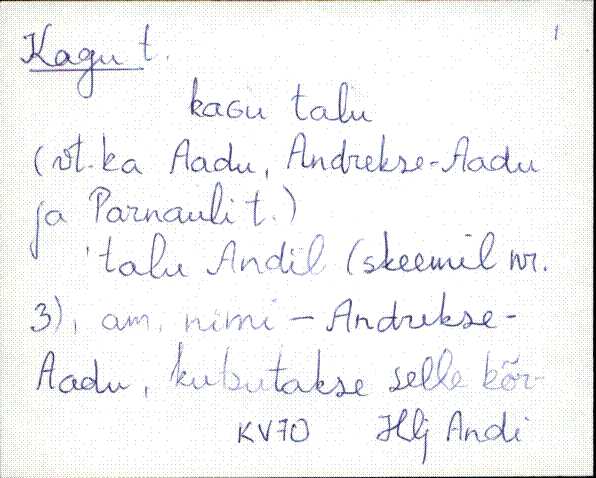 Kagu t.
kaGu talu
(vt. ka Aadu, Andrekse-Aadu
ja Parnauli t.)
'talu Andil (skeemil nr.
3), am. nimi - Andrekse-
Aadu, kutsutakse selle kõr-
KV70 Hlj Andi